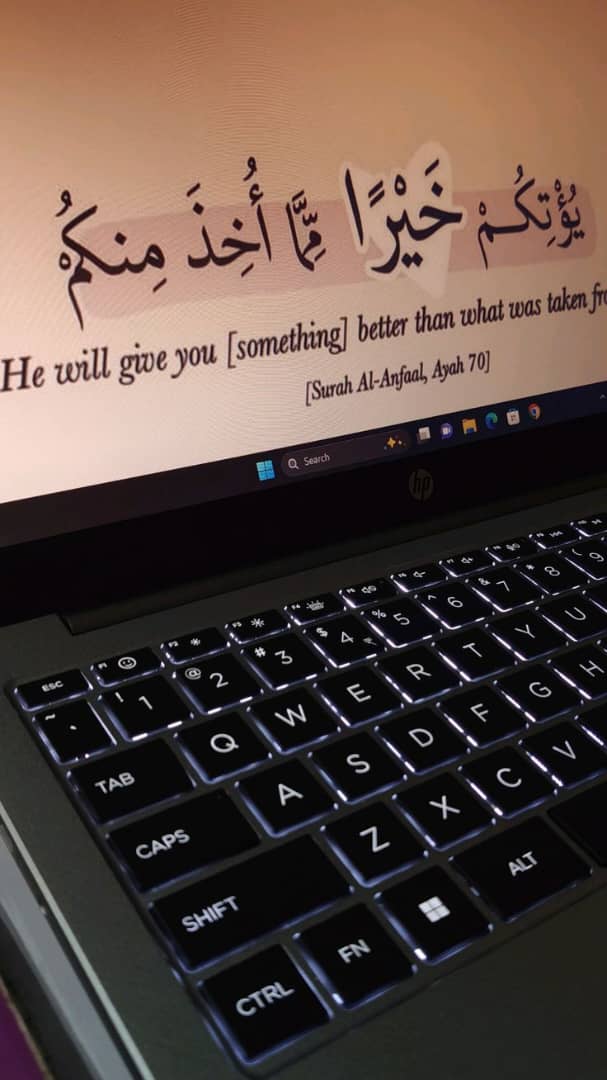 يُؤْتِكُمْ خَيْرًا مِّمَّا أُخِذَ مِنكُمْ
He will give you [something] better than what was taken
[Surah Al-Anfaal, Ayah 70]
Search
hp
ESC F1 F2 F3 F4
~ ` ! 1 @ 2 # 3 $ 4 % 5 ^ 6 & 7 * 8 ( 9
TAB Q W E R T Y U
CAPS A S D F G H
SHIFT Z X C V
CTRL FN ALT